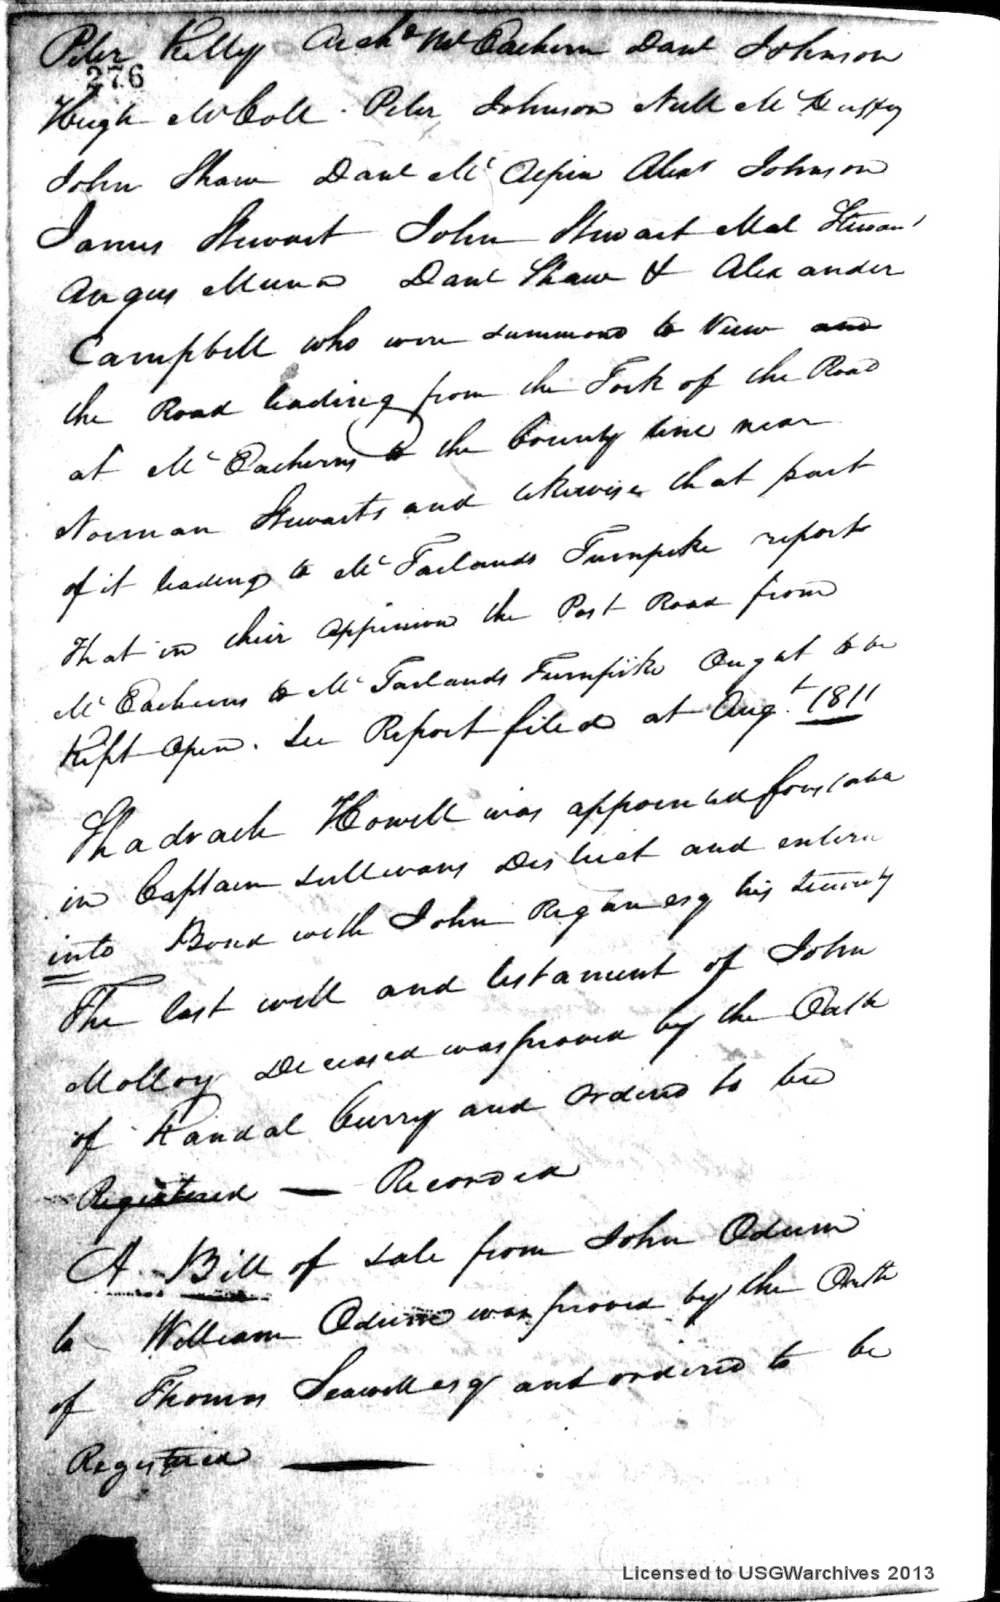 Peter Kelly Archd McEachern Danl Johnson
276
Hugh McColl Peter Johnson Neill McDuffy
John Shaw Danl McAlpin Alexr Johnson
James Stewart John Stewart Mal Stewart
Angus Munro Danl Shaw & Alexander
Campbell who were summond to View and
the Road leading from the Fork of the Road
at McEacherns to the County line near
Norman Stewarts and likewise that part
of it leading to McFarlands Turnpike report
that in their oppinion the Post Road from
McEacherns to McFarlands Turnpike Ought to be
Kept open. See Report filed at Augt. 1811
Shadrach Howell was appointed Constable
in Captain Sullivans District and enterd
into Bond with John Regan esq his security
The last will and testament of John
Molloy Deceased was proved by the Oath
of Randal Curry and ordered to be
Registered — Recorded
A Bill of sale from John Odum
to William Odum was proved by the Oath
of Thomas Seawell esqr and ordered to be
Registered —
Licensed to USGWarchives 2013